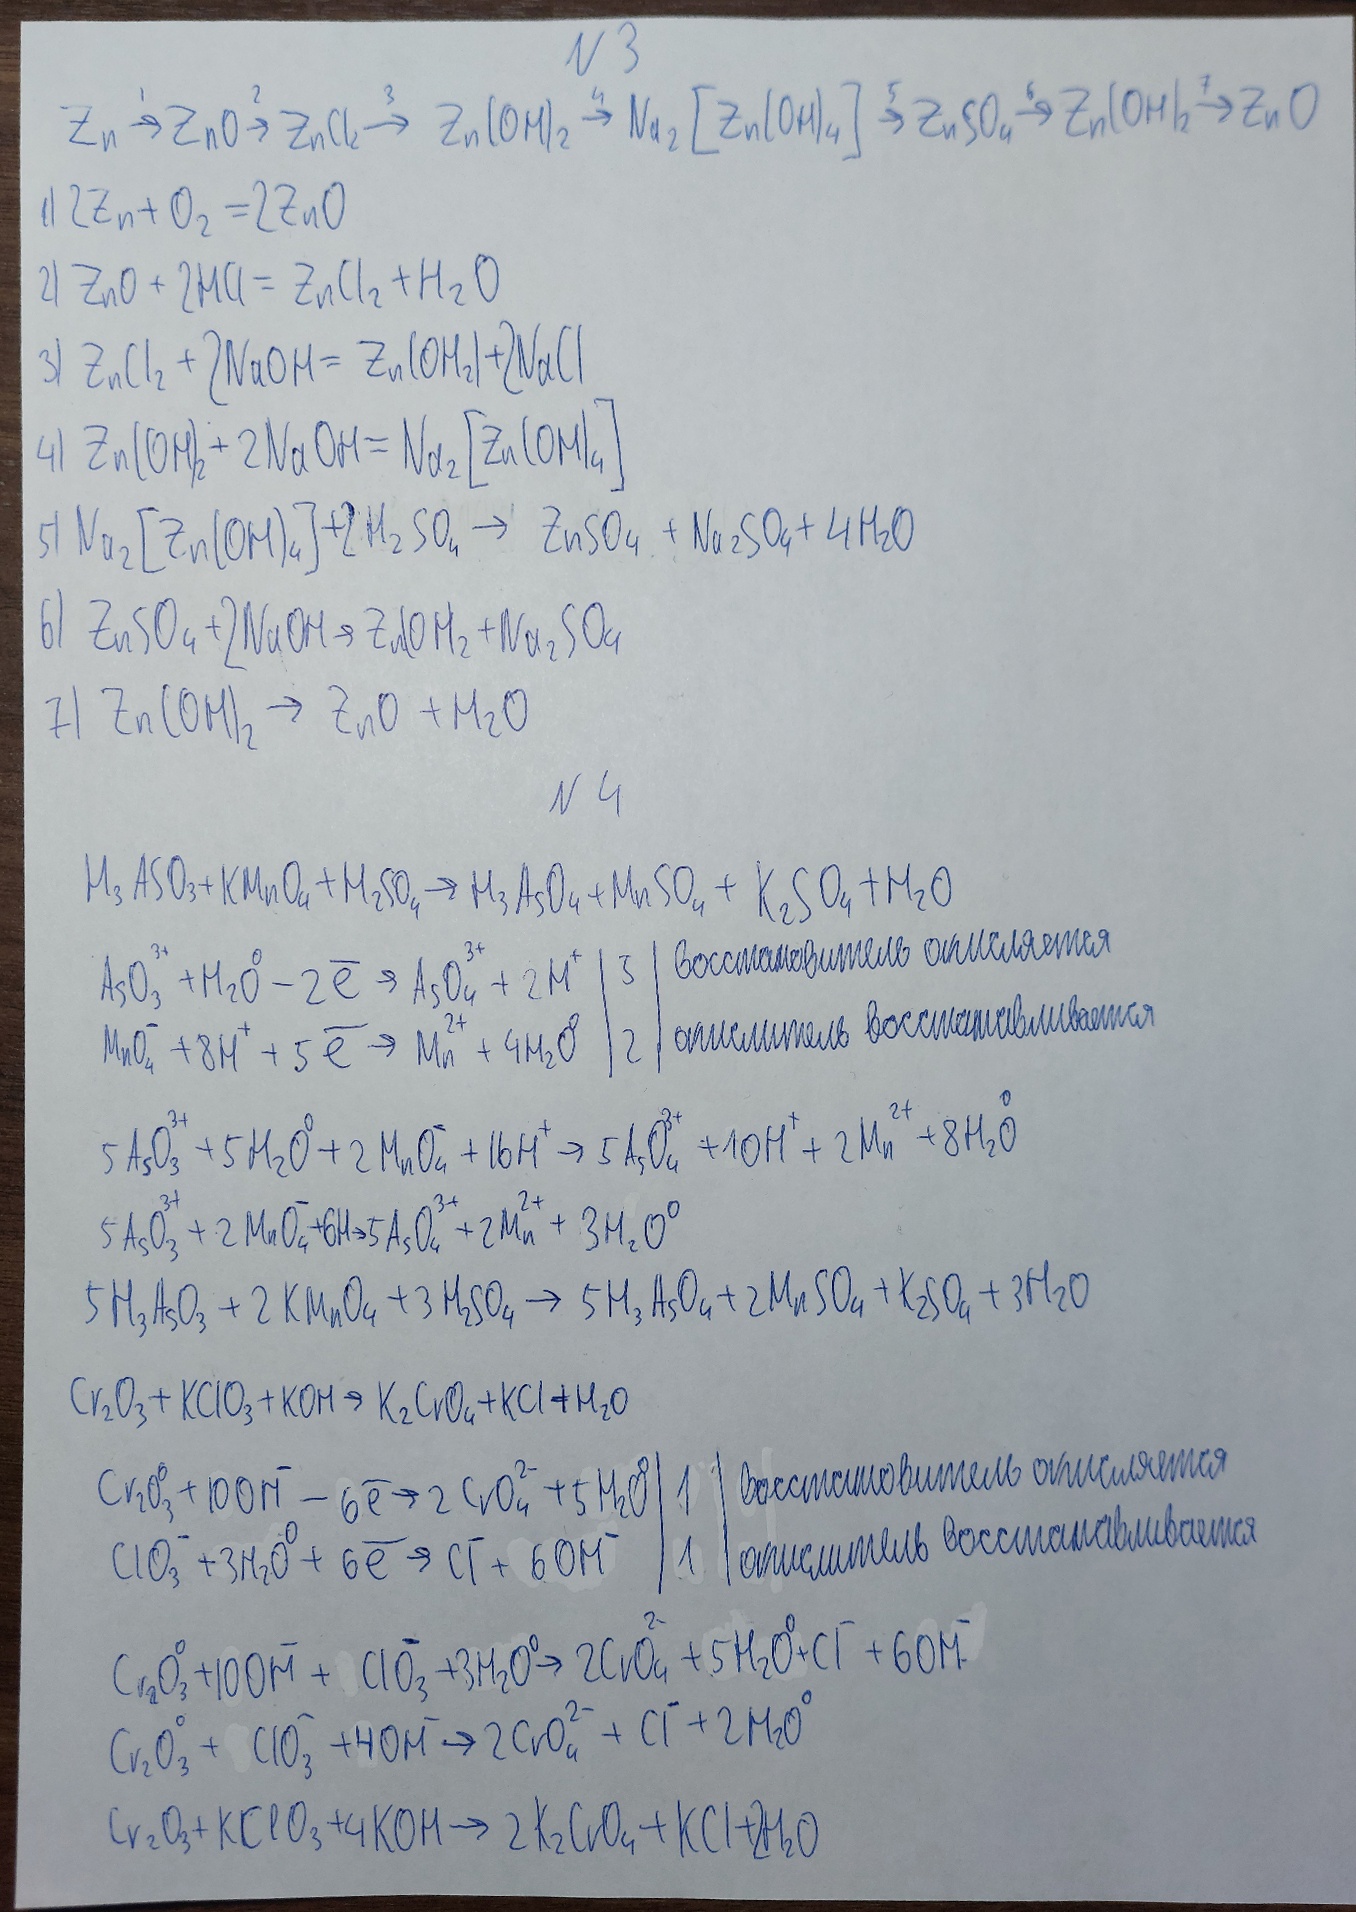 N 3
Zn →¹ ZnO →² ZnCl₂ →³ Zn(OH)₂ →⁴ Na₂[Zn(OH)₄] →⁵ ZnSO₄ →⁶ Zn(OH)₂ →⁷ ZnO
1) 2Zn + O₂ = 2ZnO
2) ZnO + 2HCl = ZnCl₂ + H₂O
3) ZnCl₂ + 2NaOH = Zn(OH₂) + 2NaCl
4) Zn(OH)₂ + 2NaOH = Na₂[Zn(OH)₄]
5) Na₂[Zn(OH)₄] + 2H₂SO₄ → ZnSO₄ + Na₂SO₄ + 4H₂O
6) ZnSO₄ + 2NaOH → Zn(OH₂ + Na₂SO₄
7) Zn(OH)₂ → ZnO + H₂O
N 4
H₃ASO₃ + KMnO₄ + H₂SO₄ → H₃AsO₄ + MnSO₄ + K₂SO₄ + H₂O
AsO₃³⁺ + H₂O⁰ - 2e̅ → AsO₄³⁺ + 2H⁺ | 5 | восстановитель окисляется
MnO₄⁻ + 8H⁺ + 5e̅ → Mn²⁺ + 4H₂O⁰ | 2 | окислитель восстанавливается
5AsO₃³⁺ + 5H₂O⁰ + 2MnO₄⁻ + 16H⁺ → 5AsO₄³⁺ + 10H⁺ + 2Mn²⁺ + 8H₂O⁰
5AsO₃³⁺ + 2MnO₄⁻ + 6H → 5AsO₄³⁺ + 2Mn²⁺ + 3H₂O⁰
5H₃AsO₃ + 2KMnO₄ + 3H₂SO₄ → 5H₃AsO₄ + 2MnSO₄ + K₂SO₄ + 3H₂O
Cr₂O₃ + KClO₃ + KOH → K₂CrO₄ + KCl + H₂O
Cr₂O₃⁰ + 10OH⁻ - 6e̅ → 2CrO₄²⁻ + 5H₂O⁰ | 1 | восстановитель окисляется
ClO₃⁻ + 3H₂O⁰ + 6e̅ → Cl⁻ + 6OH⁻ | 1 | окислитель восстанавливается
Cr₂O₃⁰ + 10OH⁻ + ClO₃⁻ + 3H₂O⁰ → 2CrO₄²⁻ + 5H₂O⁰ + Cl⁻ + 6OH⁻
Cr₂O₃⁰ + ClO₃⁻ + 4OH⁻ → 2CrO₄²⁻ + Cl⁻ + 2H₂O⁰
Cr₂O₃ + KClO₃ + 4KOH → 2K₂CrO₄ + KCl + 2H₂O